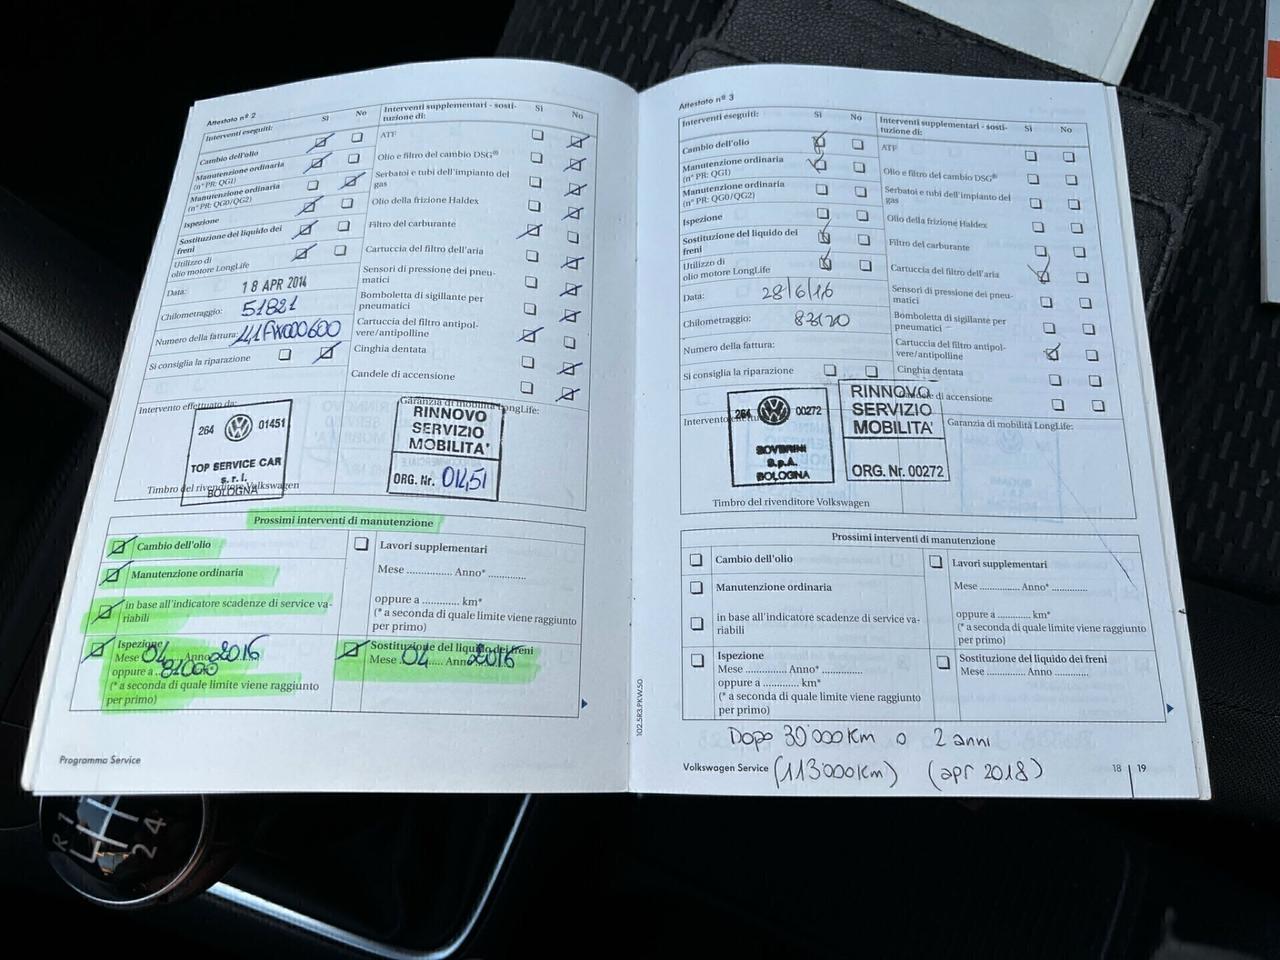 Attestato nº 2
Interventi eseguiti:
Sì
No
Cambio dell'olio
Manutenzione ordinaria
(nº PR: QG1)
Manutenzione ordinaria
(nº PR: QG0/QG2)
Ispezione
Sostituzione del liquido dei
freni
Utilizzo di
olio motore LongLife
Data:
18 APR 2014
Chilometraggio:
51821
Numero della fattura:
Si consiglia la riparazione
Interventi supplementari - sosti-
tuzione di:
Sì
No
ATF
Olio e filtro del cambio DSG®
Serbatoi e tubi dell'impianto del
gas
Olio della frizione Haldex
Filtro del carburante
Cartuccia del filtro dell'aria
Sensori di pressione dei pneu-
matici
Bomboletta di sigillante per
pneumatici
Cartuccia del filtro antipol-
vere/antipolline
Cinghia dentata
Candele di accensione
Intervento effettuato da:
264
01451
TOP SERVICE CAR
s.r.l.
BOLOGNA
Timbro del rivenditore Volkswagen
Garanzia di mobilità LongLife:
RINNOVO
SERVIZIO
MOBILITA'
ORG. Nr. 01451
Prossimi interventi di manutenzione
Cambio dell'olio
Manutenzione ordinaria
in base all'indicatore scadenze di service va-
riabili
Ispezione
Mese 04 Anno 2016
oppure a 81000
(* a seconda di quale limite viene raggiunto
per primo)
Lavori supplementari
Mese ............... Anno* .............
oppure a ............ km*
(* a seconda di quale limite viene raggiunto
per primo)
Sostituzione del liquido dei freni
Mese 04 Anno 2016
Programma Service
102.5R3.PKW.50
Attestato nº 3
Interventi eseguiti:
Sì
No
Cambio dell'olio
Manutenzione ordinaria
(nº PR: QG1)
Manutenzione ordinaria
(nº PR: QG0/QG2)
Ispezione
Sostituzione del liquido dei
freni
Utilizzo di
olio motore LongLife
Data:
28/6/16
Chilometraggio:
Numero della fattura:
Si consiglia la riparazione
Interventi supplementari - sosti-
tuzione di:
Sì
No
ATF
Olio e filtro del cambio DSG®
Serbatoi e tubi dell'impianto del
gas
Olio della frizione Haldex
Filtro del carburante
Cartuccia del filtro dell'aria
Sensori di pressione dei pneu-
matici
Bomboletta di sigillante per
pneumatici
Cartuccia del filtro antipol-
vere/antipolline
Cinghia dentata
Candele di accensione
264
00272
S.p.A.
BOLOGNA
Timbro del rivenditore Volkswagen
RINNOVO
SERVIZIO
MOBILITA'
ORG. Nr. 00272
Garanzia di mobilità LongLife:
Prossimi interventi di manutenzione
Cambio dell'olio
Manutenzione ordinaria
in base all'indicatore scadenze di service va-
riabili
Ispezione
Mese ............... Anno* .............
oppure a ............ km*
(* a seconda di quale limite viene raggiunto
per primo)
Lavori supplementari
Mese ............... Anno* .............
oppure a ............ km*
(* a seconda di quale limite viene raggiunto
per primo)
Sostituzione del liquido dei freni
Mese ............... Anno* .............
Dopo 30'000 Km o 2 anni
(113'000 Km) (apr 2018)
Volkswagen Service
18 | 19
R 1 2 4